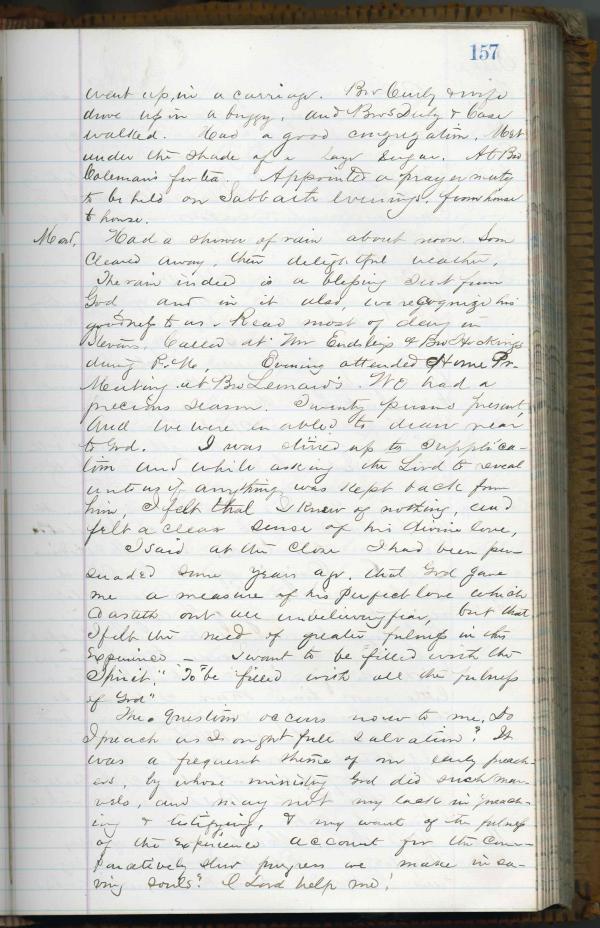 157
went up, in a carriage. Bro Curly & wife
drove up in a buggy, and Bros & Case
walked. Had a good congregation. Met
under the shade of a large . At Bro
Coleman's for tea. Appointed a prayer meetg
to be held on Sabbath evenings, from house
to house.
Mond. Had a shower of rain about noon. Soon
cleared away, then delightful weather.
The rain indeed is a blessing sent from
God and in it also, we recognize his
goodness to us. Read most of day in
Stevens. Called at Mr & Bro Hoskings
during P.M. Evening attended Home Pr-
Meeting at Bro Leonard's. We had a
precious season. Twenty persons present,
and we were in abled to draw near
to God. I was stirred up to supplica-
tion and while asking the Lord to reveal
unto us if anything was kept back from
him, I felt that I knew of nothing, and
felt a clear sense of his divine love,
I said at the close I had been per-
suaded some years ago, that God gave
me a measure of his perfect love which
casteth out all unbelieving fear, but that
I felt the need of greater fulness in this
experience — I want to be filled with the
Spirit." "To be filled with all the fulness
of God"
The question occurs now to me, Do
I preach as I ought full salvation? It
was a frequent theme of our early preach-
ers, by whose ministry God did such mar-
vels, and may not my lack in preach-
ing & testifying, & my want of the fulness
of the experience account for the com-
paratively slow progress we make in sa-
ving souls? O Lord help me!